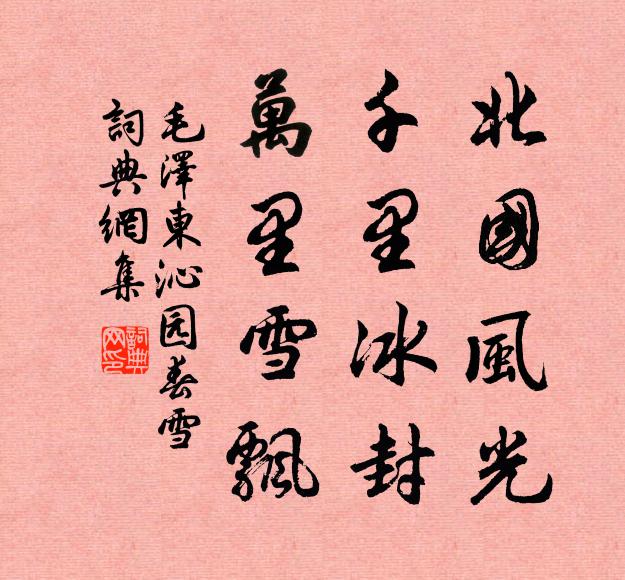 北國風光
千里冰封
萬里雪飄
毛澤東沁园春雪
詞典網集
詞典网印